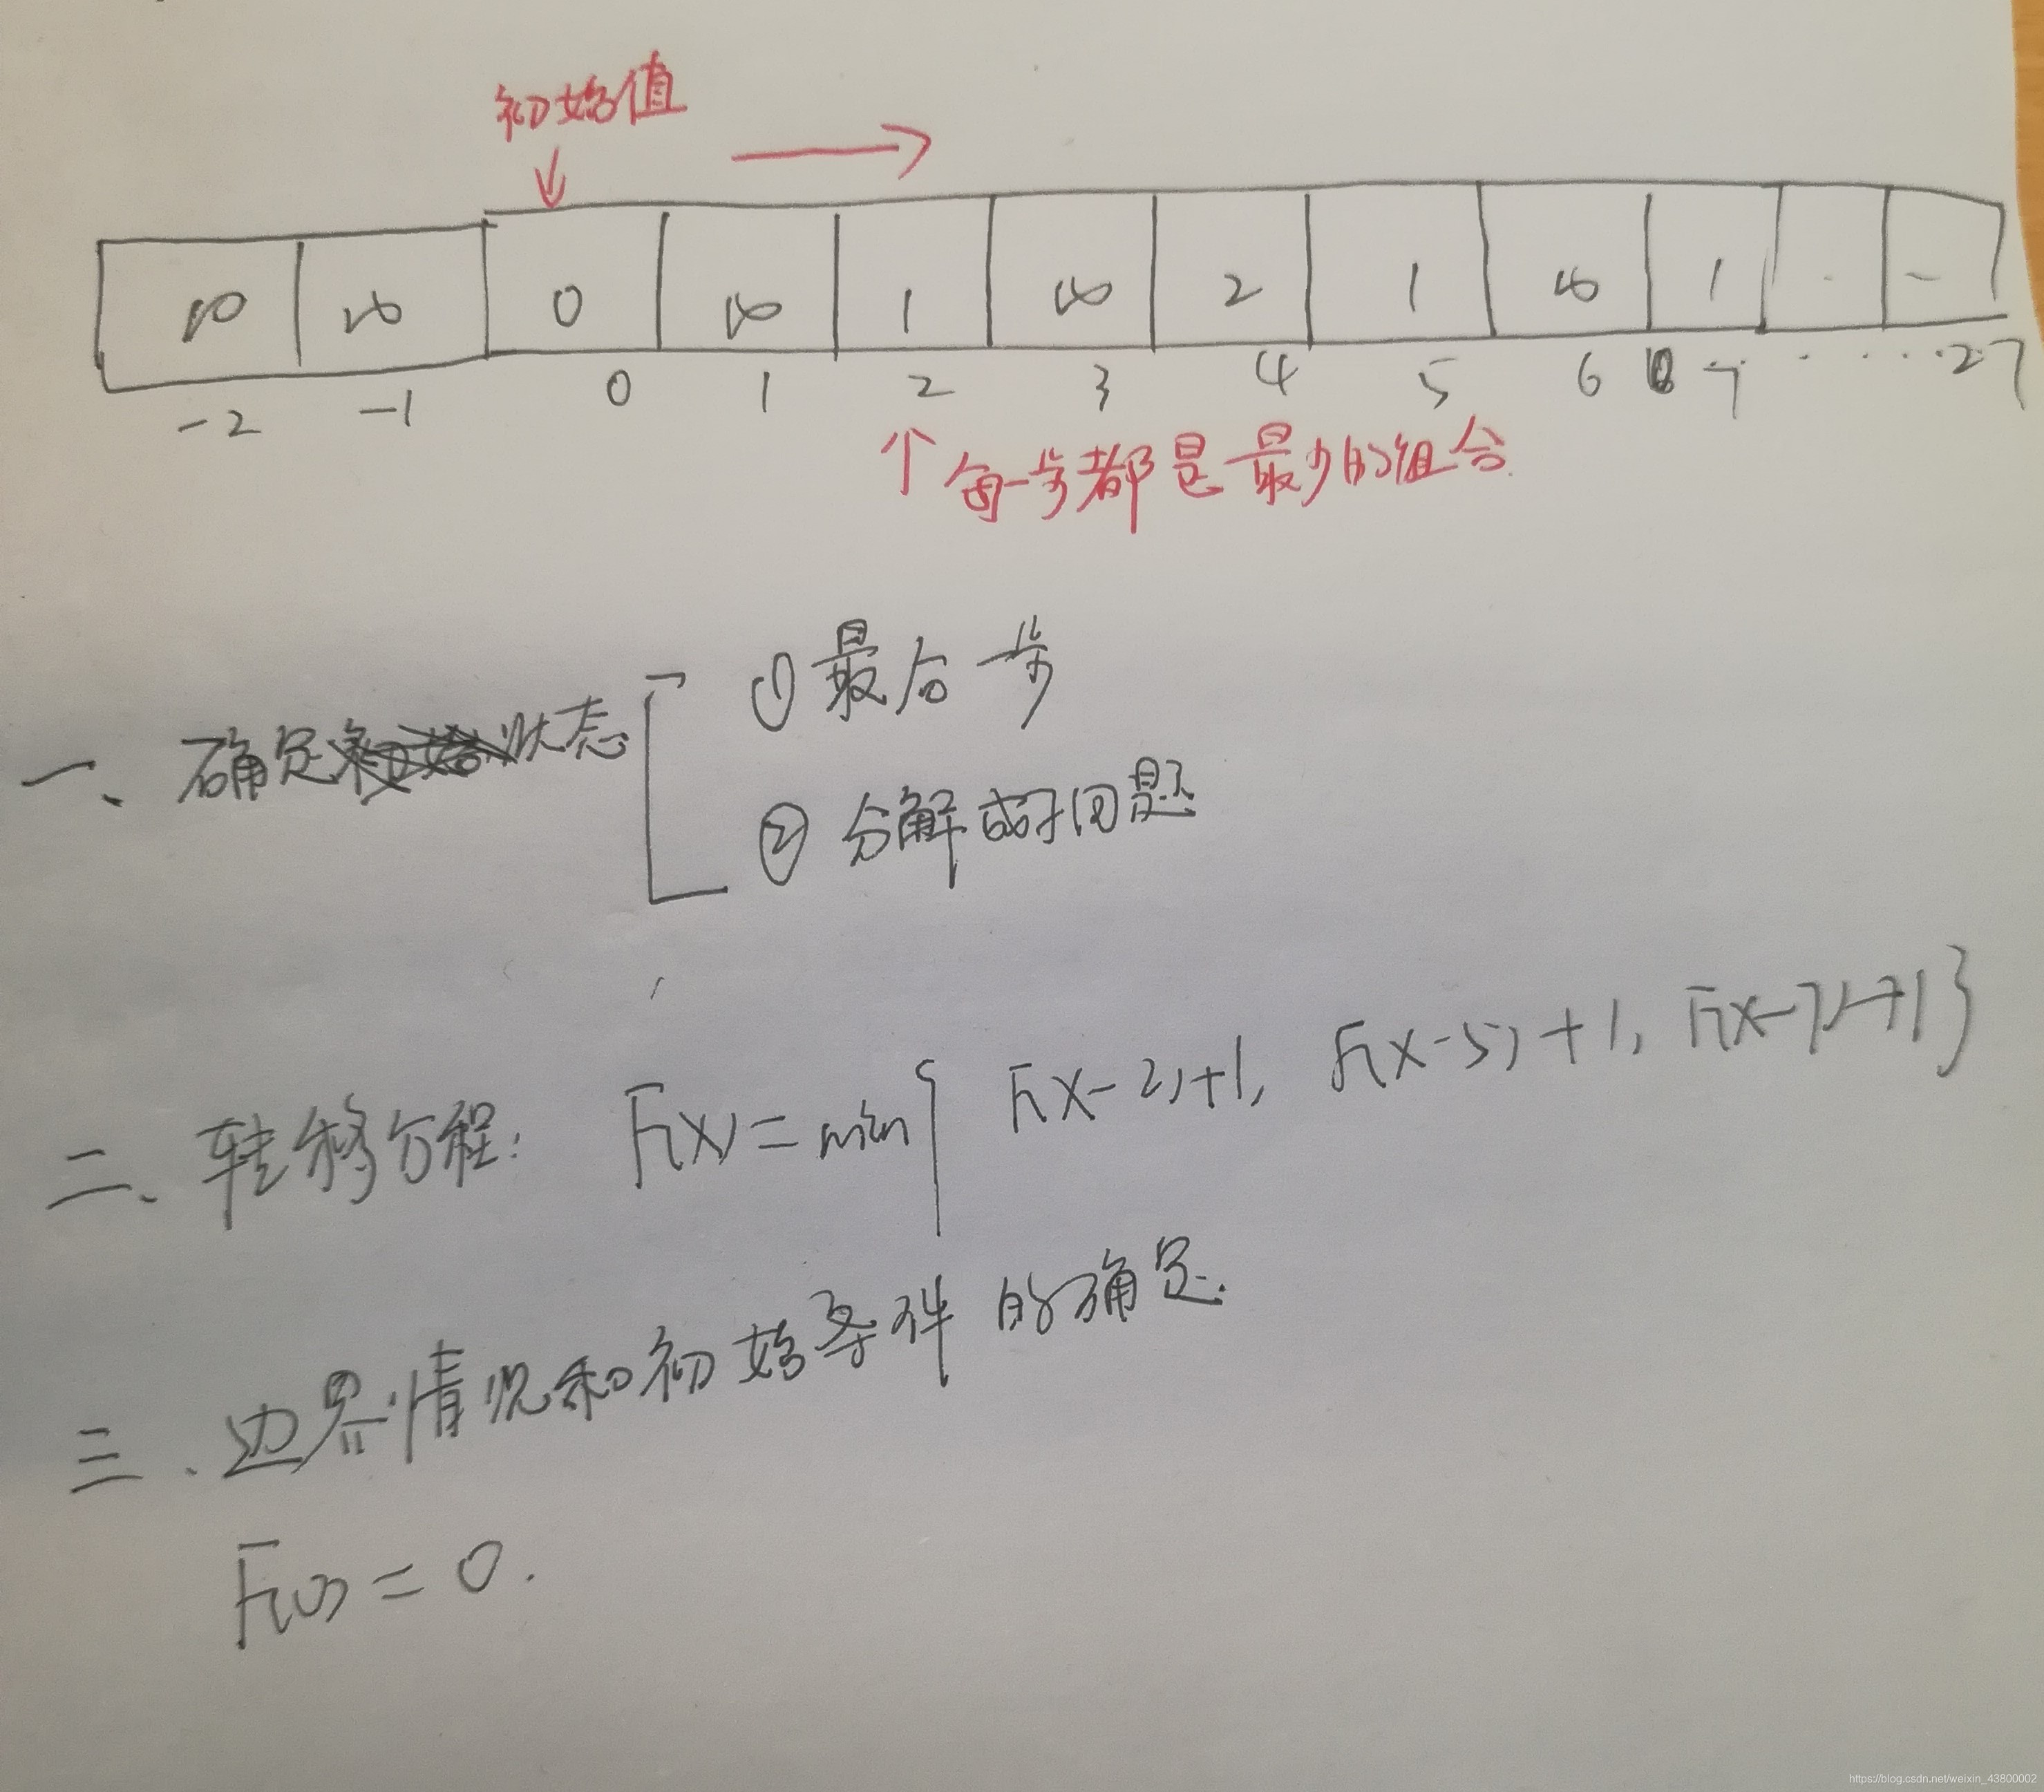 初始值
∞ ∞ 0 ∞ 1 ∞ 2 1 ∞ 1 . -
-2 -1 0 1 2 3 4 5 6 7 ...... 27
个每一步都是最少的组合.
一、确定状态
①最后一步
②分解成子问题
二、转移方程: F(X)=min{ F(X-2)+1, F(X-5)+1, F(X-7)+1}
三.边界情况和初始条件的确定.
F(0)=0.
https://blog.csdn.net/weixin_43800002